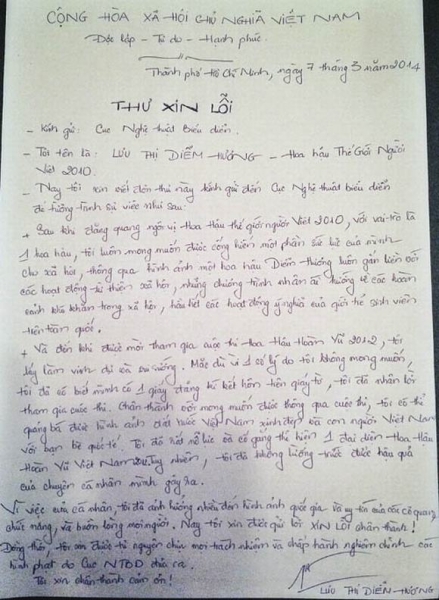 CỘNG HÒA XÃ HỘI CHỦ NGHĨA VIỆT NAM
Độc lập - Tự do - Hạnh phúc.
Thành phố Hồ Chí Minh, ngày 7 tháng 3 năm 2014
THƯ XIN LỖI
- Kính gửi: Cục Nghệ thuật Biểu diễn.
- Tôi tên là: LƯU THỊ DIỄM - HƯƠNG - Hoa hậu Thế Giới Người
Việt 2010.
- Nay tôi xin viết đơn thư này kính gửi đến Cục Nghệ thuật biểu diễn
để tường trình sự việc như sau:
+ Sau khi đăng quang ngôi vị Hoa Hậu thế giới người Việt 2010, với vai trò là
1 hoa hậu, tôi luôn mong muốn được cống hiến một phần sức bé của mình
cho xã hội, thông qua hình ảnh một hoa hậu Diễm Hương luôn gắn liền với
các hoạt động từ thiện xã hội, những chương trình nhân ái hướng về các hoàn
cảnh khó khăn trong xã hội, hầu hết các hoạt động ý nghĩa của giới trẻ sinh viên
trên toàn quốc.
+ Và đến khi được mời tham gia cuộc thi Hoa Hậu Hoàn Vũ 2012, tôi
lấy làm vinh dự và vui sướng. Mặc dù vì 1 số lý do tôi không mong muốn,
tôi đã có biết mình có 1 giấy đăng ký kết hôn trên giấy tờ, tôi đã nhận lời
tham gia cuộc thi. Chân thành với mong muốn được thông qua cuộc thi, tôi có thể
quảng bá được hình ảnh đất nước Việt Nam xinh đẹp và con người Việt Nam
với bạn bè quốc tế. Tôi đã hết nỗ lực và cố gắng thể hiện 1 đại diện Hoa Hậu
Hoàn Vũ Việt Nam 2012. Tuy nhiên, tôi đã không lường trước được hậu quả
của chuyện cá nhân mình gây ra.
Vì việc của cá nhân, tôi đã ảnh hưởng nhiều đến hình ảnh quốc gia và uy tín của các cơ quan
chức năng, và buồn lòng mọi người. Nay tôi xin được gửi lời XIN LỖI chân thành!
Đồng thời, tôi xin được tự nguyện chịu mọi trách nhiệm và chấp hành nghiêm chỉnh các
hình phạt do Cục NTBD đưa ra.
Tôi xin chân thành cảm ơn!
LƯU THỊ DIỄM - HƯƠNG